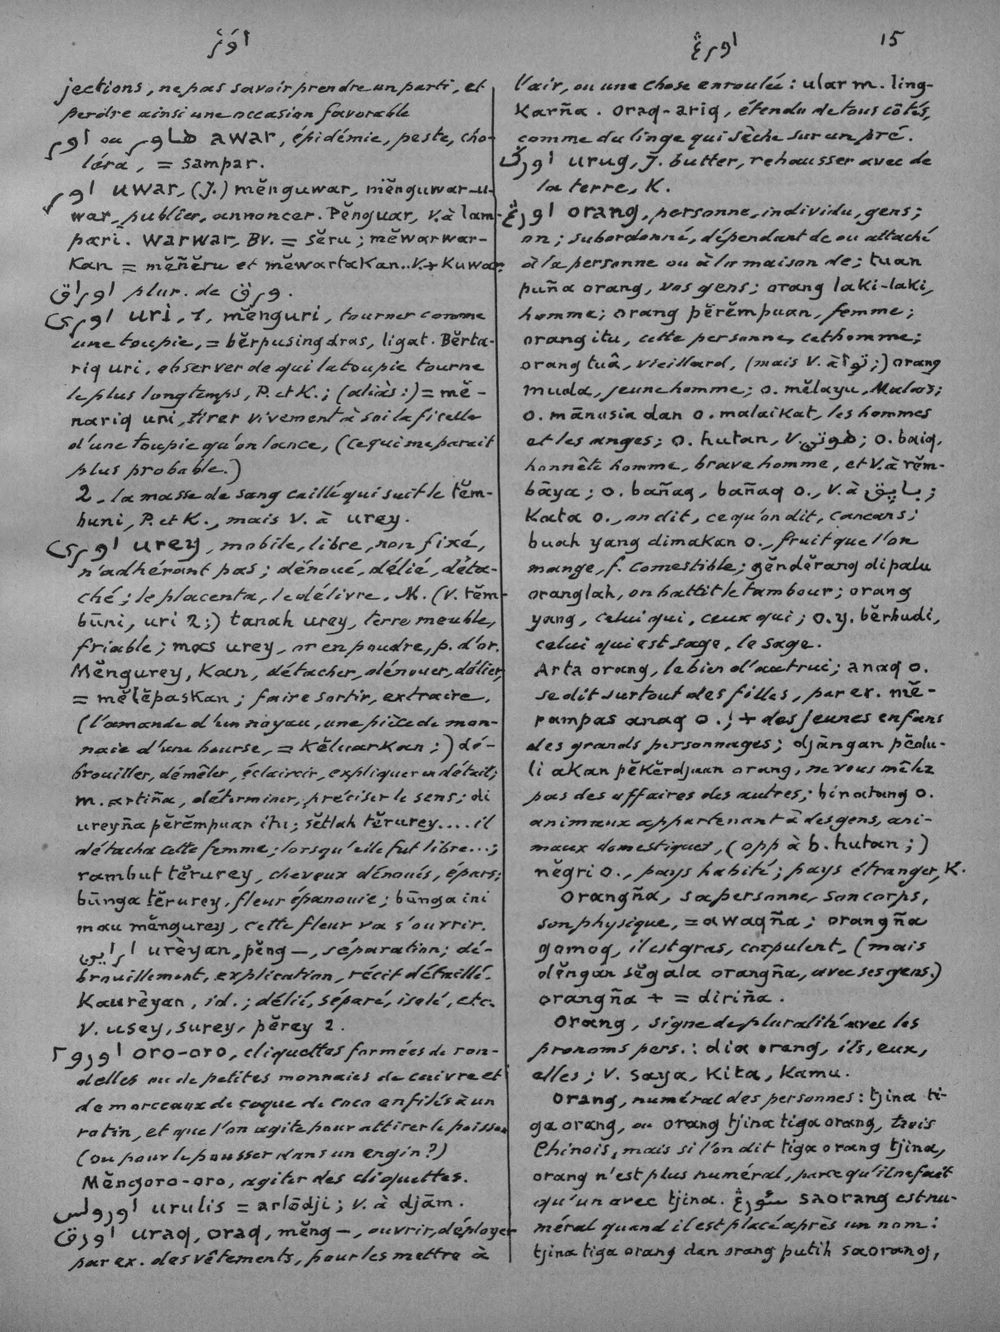 اور
اورڠ
15
jections, ne pas savoir prendre un parti, et
perdre ainsi une occasion favorable
اور ou هاور awar, épidémie, peste, cho-
léra, = sampar.
اور uwar, (J.) mĕnguwar, mĕnguwar-u-
war, publier, annoncer. Pĕnguar, V. à lam-
pari. Warwar, Bv. = sĕru; mĕwarwar-
kan = mĕñĕru et mĕwartakan. V. + Kuwar
اوراق plur. de ورق.
اوري uri, 1, mĕnguri, tourner comme
une toupie, = bĕrpusing dras, ligat. Bĕrta-
riq uri, observer de qui la toupie tourne
le plus longtemps, P. et K.; (aliàs:) = mĕ-
nariq uri, tirer vivement à soi la ficelle
d'une toupie qu'on lance, (ce qui me parait
plus probable.)
2. la masse de sang caillé qui suit le tĕm-
buni, P. et K., mais V. à urey.
اوري urey, mobile, libre, non fixé,
n'adhérant pas; dénoué, délié, déta-
ché; le placenta, le délivre. M. (V. tĕm-
būni, uri 2;) tanah urey, terre meuble,
friable; mas urey, or en poudre, p. d'or.
Mĕngurey, kan, détacher, dénouer, délier,
= mĕlĕpaskan; faire sortir, extraire,
(l'amande d'un noyau, une pièce de mon-
naie d'une bourse, = kĕluarkan;) dé-
brouiller, démêler, éclaircir, expliquer en détail;
m. artiña, déterminer, préciser le sens; di
ureyña pĕrĕmpuan itu; sĕtlah tĕrurey.... il
détacha cette femme; lorsqu'elle fut libre...;
rambut tĕrurey, cheveux dénoués, épars;
būnga tĕrurey, fleur épanouie; būnga ini
mau mĕngurey, cette fleur va s'ouvrir.
urèyan, pĕng—, séparation; dé-
brouillement, explication, récit détaillé.
Kaurèyan, id.; délié, séparé, isolé, etc.
V. usey, surey, pĕrey 2.
اورو٢ oro-oro, cliquettes formées de ron-
delles ou de petites monnaies de cuivre et
de morceaux de coque de coco enfilés à un
rotin, et que l'on agite pour attirer le poisson
(ou pour le pousser dans un engin?)
Mĕngoro-oro, agiter des cliquettes.
اورولس urulis = arlōdji; V. à djām.
اورق uraq, oraq, mĕng—, ouvrir, déployer
par ex. des vêtements, pour les mettre à
l'air, ou une chose enroulée: ular m. ling-
karña. Oraq-ariq, étendu de tous côtés,
comme du linge qui sèche sur un pré.
اورݢ urug, J. butter, rehausser avec de
la terre, K.
اورڠ orang, personne, individu, gens;
on; subordonné, dépendant de ou attaché
à la personne ou à la maison de; tuan
puña orang, vos gens; orang laki-laki,
homme; orang pĕrĕmpuan, femme;
orang itu, cette personne, cet homme;
orang tuâ, vieillard, (mais V. à توا;) orang
muda, jeune homme; o. mĕlayu, Malais;
o. mānusia dan o. malaikat, les hommes
et les anges; o. hutan, V. هوتن; o. baiq,
honnête homme, brave homme, et V. à rĕm-
bāya; o. bañaq, bañaq o., V. à باپق;
Kata o., on dit, ce qu'on dit, cancans;
buah yang dimakan o., fruit que l'on
mange, f. comestible; gĕndĕrang dipalu
oranglah, on battit le tambour; orang
yang, celui qui, ceux qui; o. y. bĕrbudi,
celui qui est sage, le sage.
Arta orang, le bien d'autrui; anaq o.
se dit surtout des filles, par ex. mĕ-
rampas anaq o.; + des jeunes enfans
des grands personnages; djāngan pĕdu-
li akan pĕkĕrdjaan orang, ne vous mêlez
pas des affaires des autres; binatang o.
animaux appartenant à des gens, ani-
maux domestiques, (opp à b. hutan;)
nĕgri o., pays habité; pays étranger, K.
Orangña, sa personne, son corps,
son physique, = awaqña; orangña
gomoq, il est gras, corpulent, (mais
dĕngan sĕgala orangña, avec ses gens.)
orangña + = diriña.
Orang, signe de pluralité avec les
pronoms pers.: dia orang, ils, eux,
elles; V. saya, kita, kamu.
Orang, numéral des personnes: tjina ti-
ga orang, ou orang tjina tiga orang, trois
Chinois, mais si l'on dit tiga orang tjina,
orang n'est plus numéral, parce qu'il ne fait
qu'un avec tjina. سئورڠ saorang est nu-
méral quand il est placé après un nom:
tjina tiga orang dan orang putih saorang,